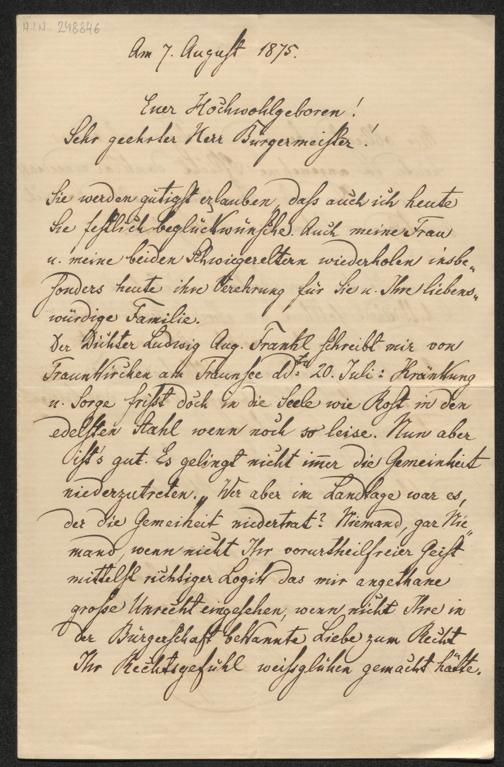 H.I.N. 248846
Am 7. August 1875.
Euer Hochwohlgeboren!
Sehr geehrter Herr Bürgermeister!
Sie werden gütigst erlauben, daß auch ich heute
Sie festlich beglückwünsche. Auch meine Frau
u. meine beiden Schwiegereltern wiederholen insbe„
sonders heute ihre Verehrung für Sie u. Ihre liebens„
würdige Familie.
Der Dichter Ludwig Aug. Frankl schreibt mir von
Traunkirchen am Traunsee ddto 20. Juli: Kränkung
u. Sorge frißt doch in die Seele wie Rost in den
edelsten Stahl wenn noch so leise. Nun aber
ist's gut. Es gelingt nicht im̅er die Gemeinheit
niederzutreten.„ Wer aber im Landtage war es,
der die Gemeiheit niedertrat? Niemand, gar Nie„
mand, wenn nicht Ihr vorurtheilfreier Geist
mittelst richtiger Logik das mir angethane
große Unrecht eingesehen, wenn nicht Ihre in
der Bürgerschaft bekannte Liebe zum Recht
Ihr Rechtsgefühl weißglühen gemacht hätte.